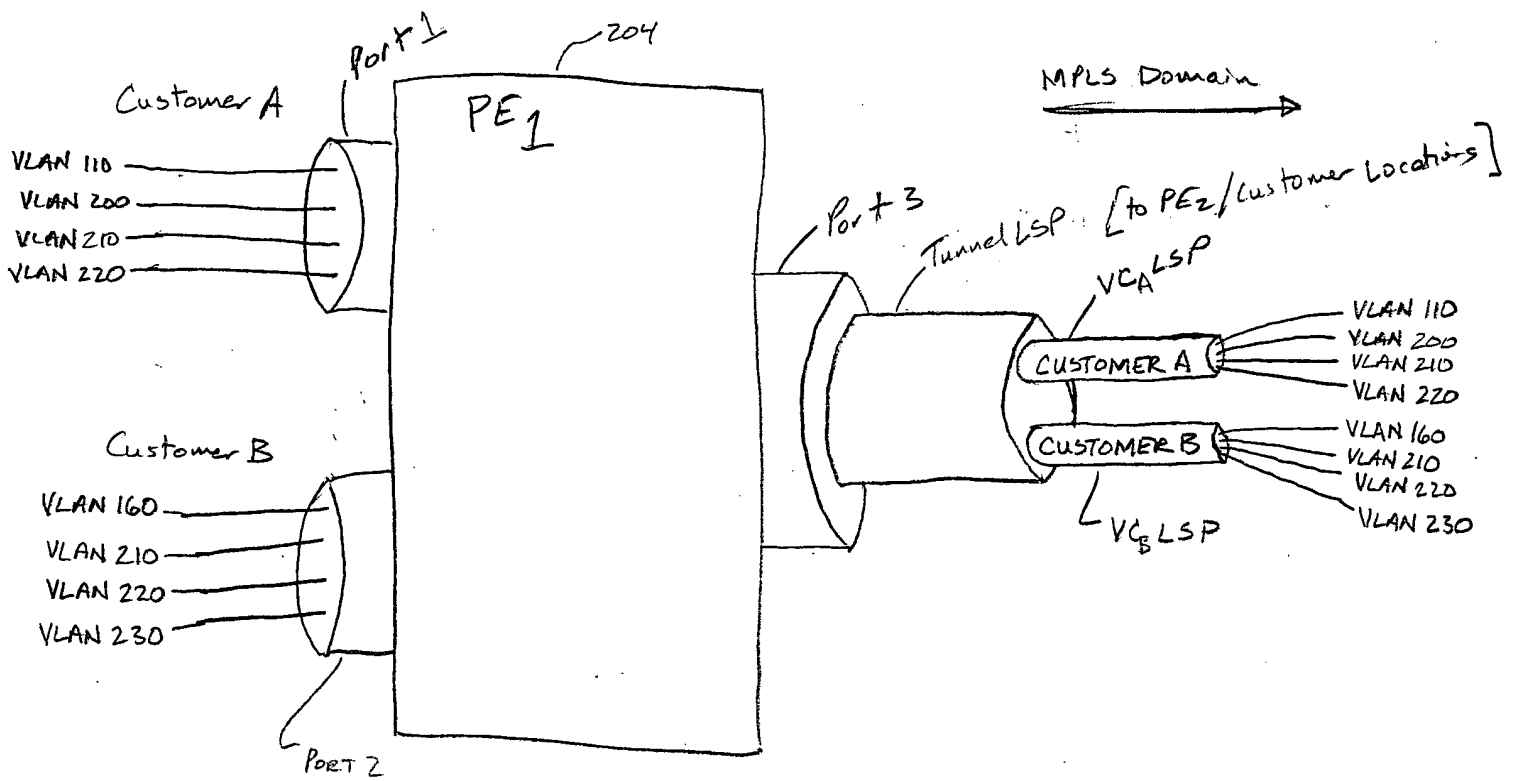 204
Port 1
Customer A
PE1
MPLS Domain
VLAN 110
VLAN 200
VLAN 210
VLAN 220
Port 3
Tunnel LSP [to PE2/Customer Locations]
VCA LSP
CUSTOMER A
VLAN 110
VLAN 200
VLAN 210
VLAN 220
Customer B
CUSTOMER B
VLAN 160
VLAN 210
VLAN 220
VLAN 230
VCB LSP
VLAN 160
VLAN 210
VLAN 220
VLAN 230
PORT 2